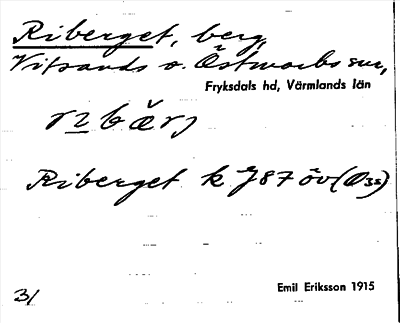 Riberget, berg,
Vitsands o. Östmarks snr,
Fryksdals hd, Värmlands län
Riberget k J87 öv (Ö35)
31
Emil Eriksson 1915